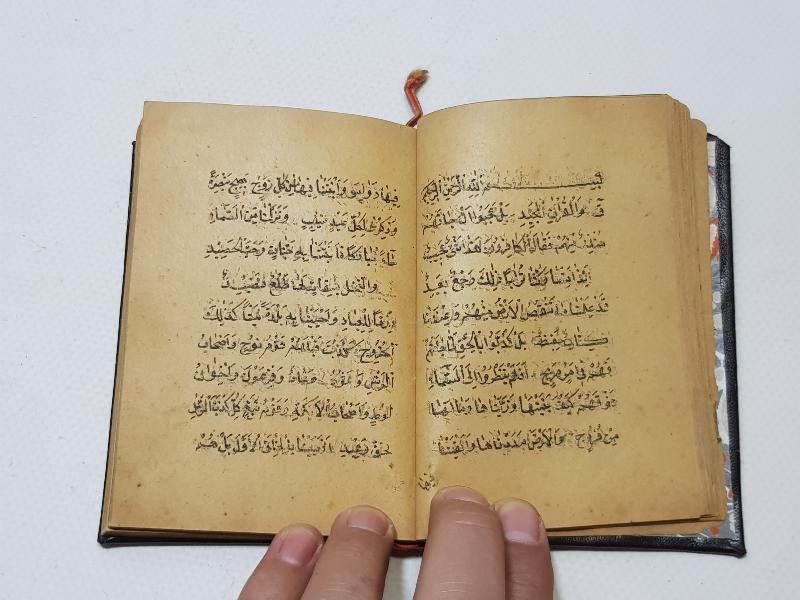 بسم الله الرحمن الرحيم
ق والقرآن المجيد بل عجبوا أن جاءهم
منذر منهم فقال الكافرون هذا شيء عجيب
أئذا متنا وكنا ترابا ذلك رجع بعيد
قد علمنا ما تنقص الأرض منهم وعندنا
كتاب حفيظ بل كذبوا بالحق لما جاءهم
فهم في أمر مريج أفلم ينظروا إلى السماء
فوقهم كيف بنيناها وزيناها وما لها
من فروج والأرض مددناها وألقينا
فيها
فيها رواسي وأنبتنا فيها من كل زوج بهيج تبصرة
وذكرى لكل عبد منيب ونزلنا من السماء
ماء مباركا فأنبتنا به جنات وحب الحصيد
والنخل باسقات لها طلع نضيد
رزقا للعباد وأحيينا به بلدة ميتا كذلك
الخروج كذبت قبلهم قوم نوح وأصحاب
الرس وثمود وعاد وفرعون وإخوان
لوط وأصحاب الأيكة وقوم تبع كل كذب الرسل
فحق وعيد أفعيينا بالخلق الأول بل هم